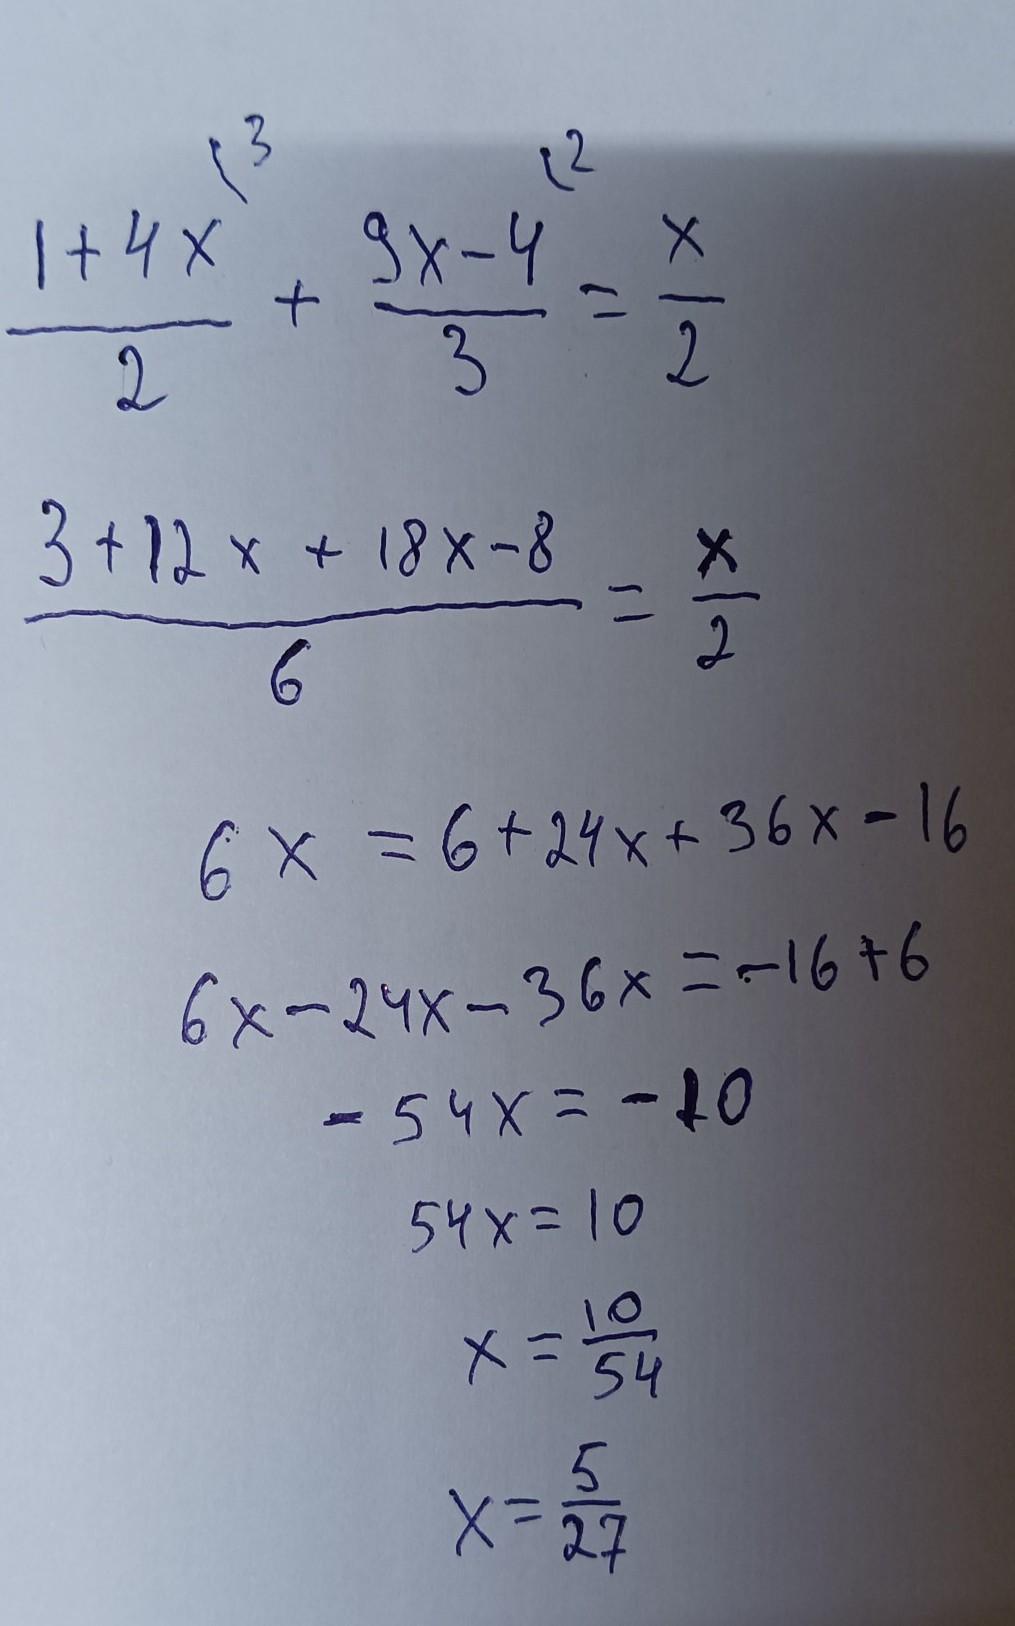 3 2
1+4x/2 + 9x-4/3 = x/2
3+12x+18x-8/6 = x/2
6x = 6+24x+36x-16
6x-24x-36x=-16+6
-54x=-10
54x=10
x=10/54
x=5/27